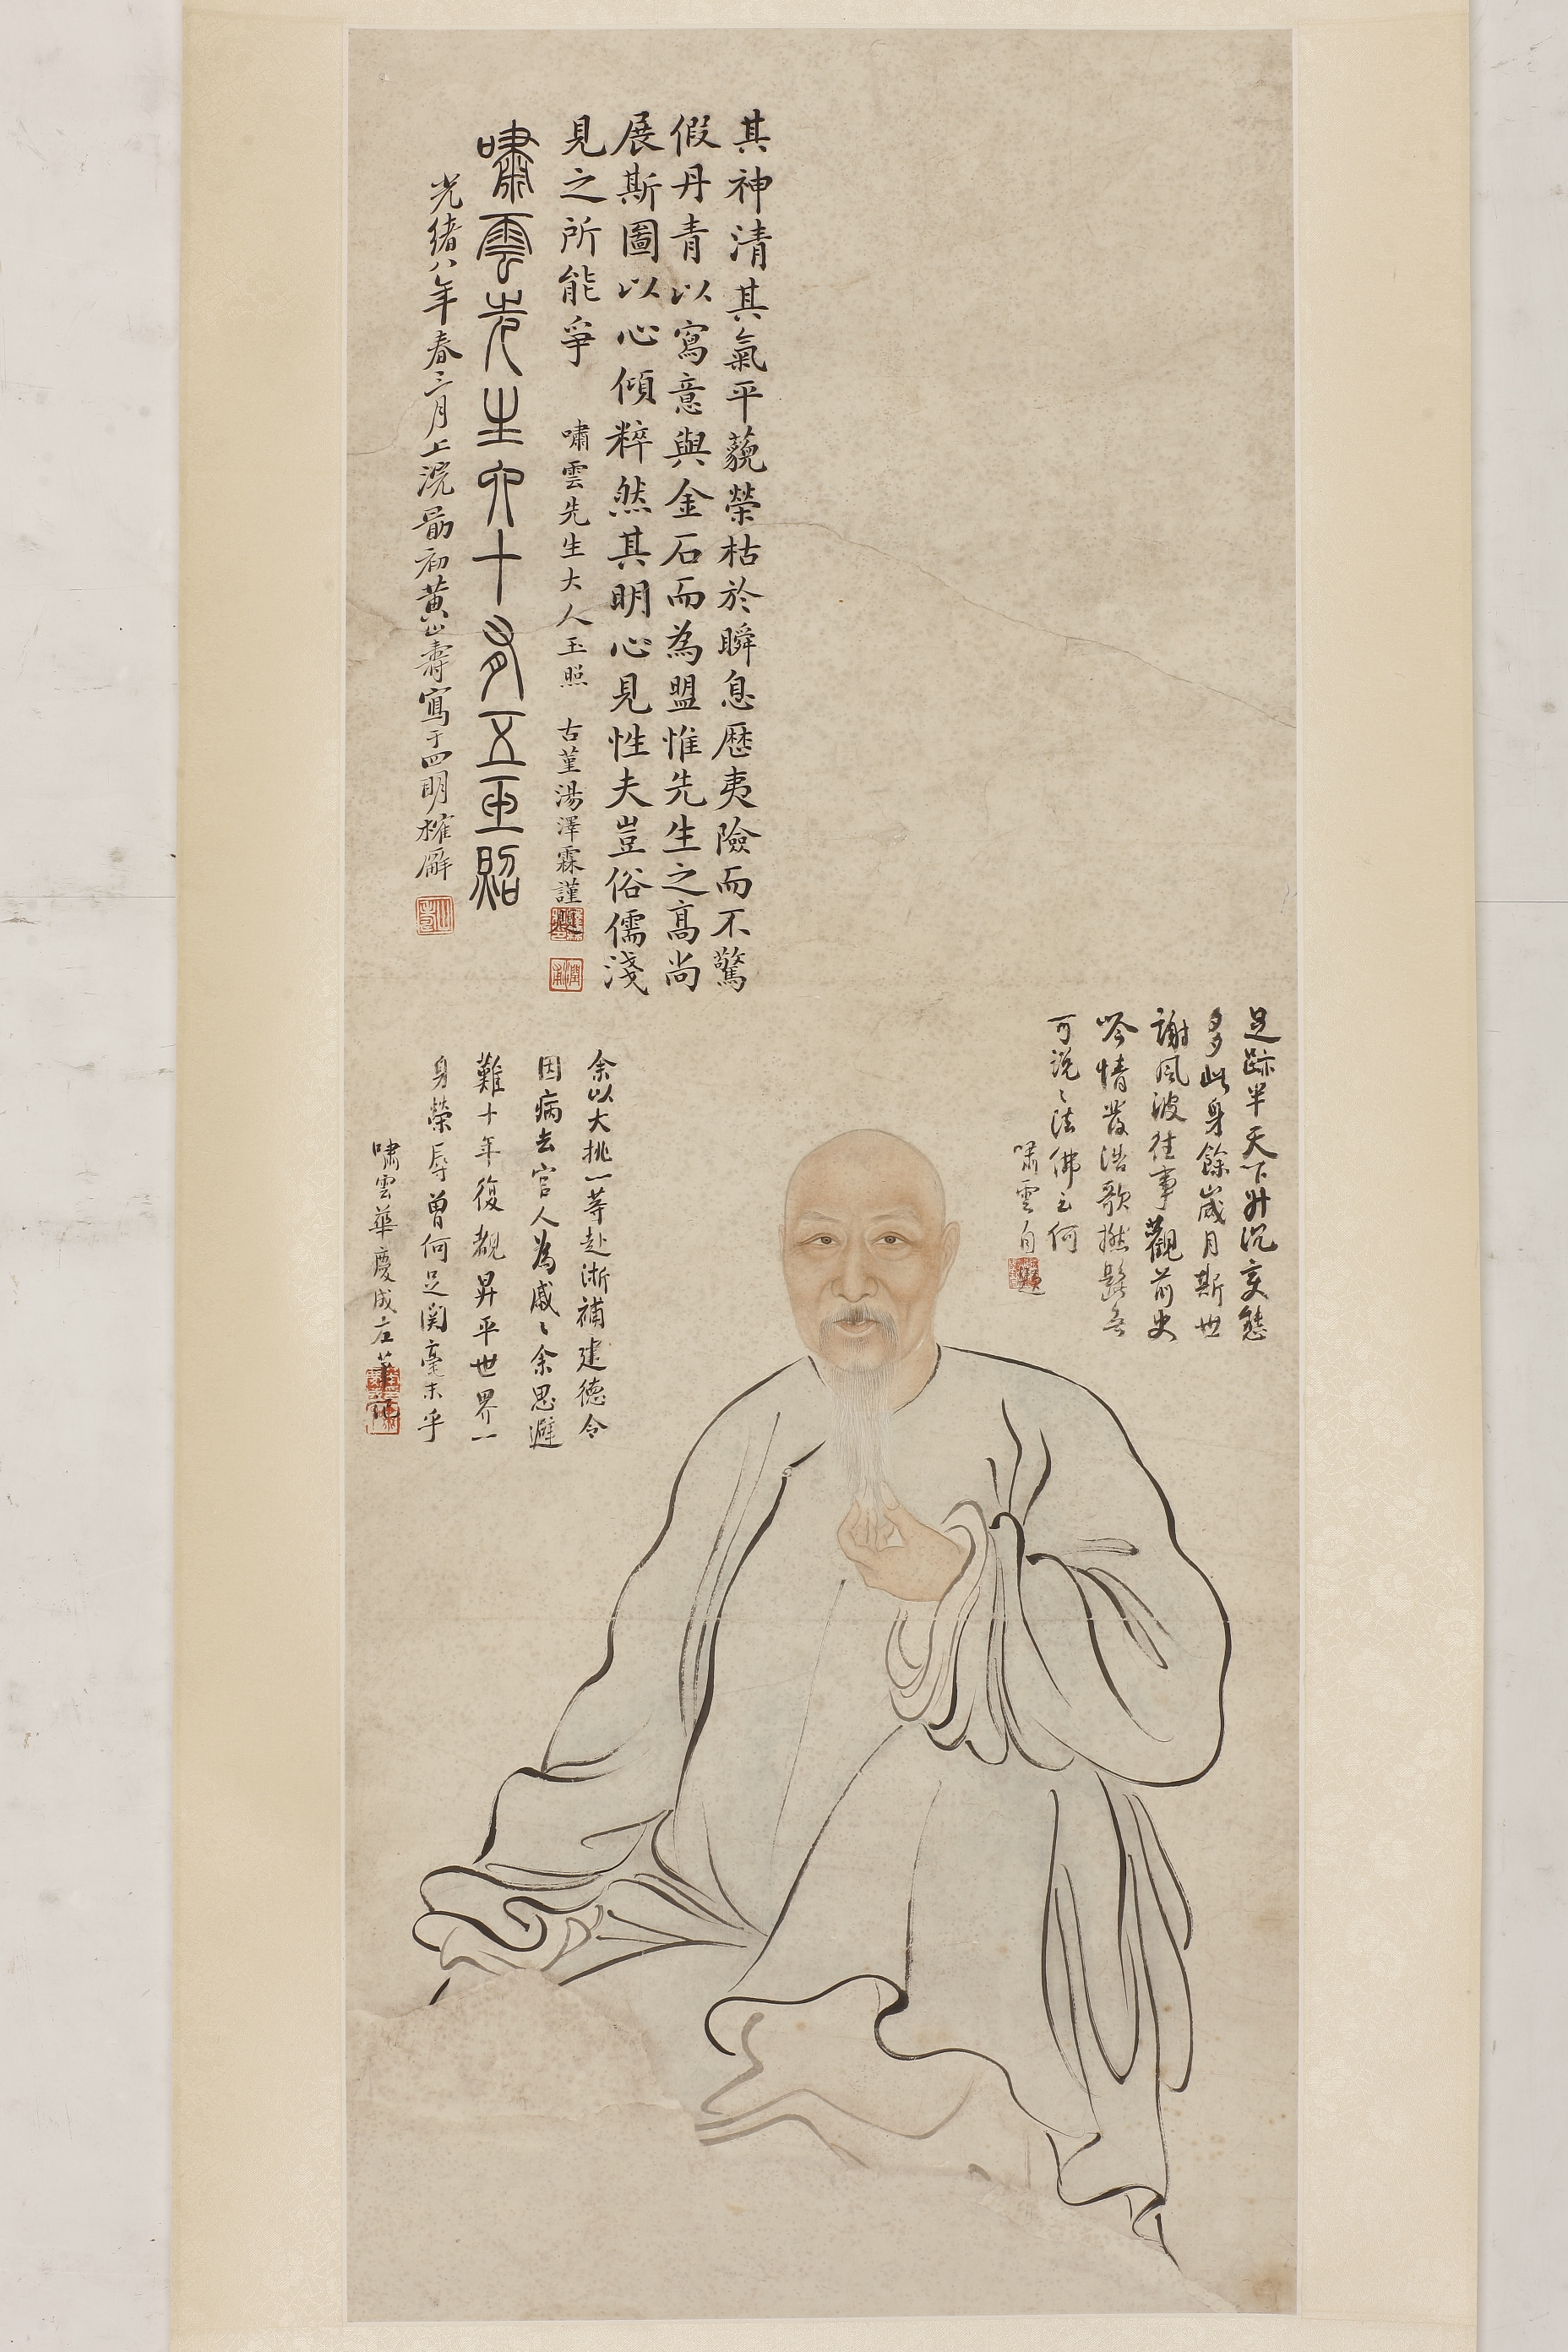 其神清其氣平藐榮枯於瞬息歷夷險而不驚
假丹青以寫意與金石而為盟惟先生之高尚
展斯圖以心傾粹然其明心見性夫豈俗儒淺
見之所能爭
嘯雲先生大人玉照 古堇湯澤霖謹題
嘯雲先生六十有五玉照
光緒八年春三月上浣勗初黃山壽寫于四明榷廨
足跡半天下升沉變態
多此身餘歲月斯世
謝風波往事觀前史
吟情發浩歌撚髭無
可說〻法佛云何
嘯雲自題
余以大挑一等赴浙補建德令
因病去官人為戚〻余思避
難十年復覩昇平世界一
身榮辱曾何足関毫末乎
嘯雲華慶成左筆